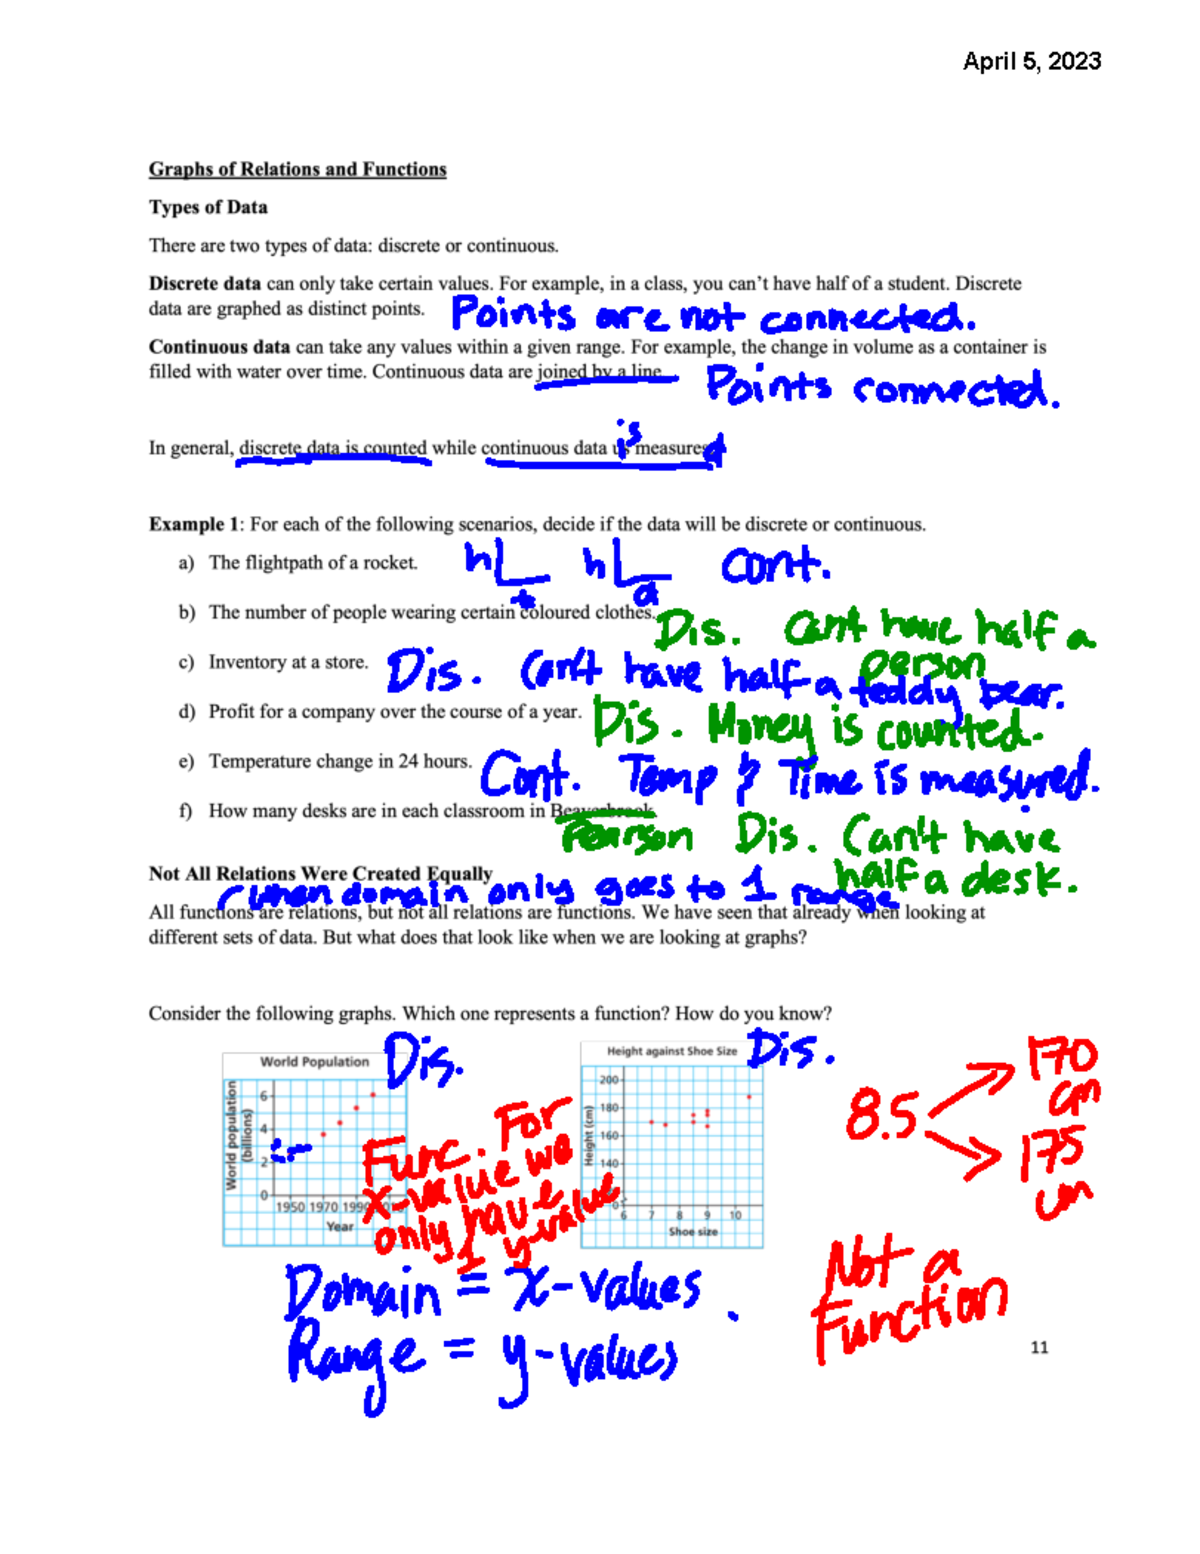 April 5, 2023
Graphs of Relations and Functions
Types of Data
There are two types of data: discrete or continuous.
Discrete data can only take certain values. For example, in a class, you can't have half of a student. Discrete
data are graphed as distinct points. Points are not connected.
Continuous data can take any values within a given range. For example, the change in volume as a container is
filled with water over time. Continuous data are joined by a line. Points connected.
In general, discrete data is counted while continuous data is measured
Example 1: For each of the following scenarios, decide if the data will be discrete or continuous.
a) The flightpath of a rocket. h t h d cont.
b) The number of people wearing certain coloured clothes. Dis. Can't have half a
person
c) Inventory at a store. Dis. Can't have half a teddy bear.
d) Profit for a company over the course of a year. Dis. Money is counted.
e) Temperature change in 24 hours. Cont. Temp & Time is measured.
f) How many desks are in each classroom in Beaverbrook
Pearson Dis. Can't have
half a desk.
Not All Relations Were Created Equally
when domain only goes to 1 range
All functions are relations, but not all relations are functions. We have seen that already when looking at
different sets of data. But what does that look like when we are looking at graphs?
Consider the following graphs. Which one represents a function? How do you know?
World Population Dis.
World population
(billions)
6
4
2
0
1950 1970 1990
Year
Func. For
x-value we
only have
1 y-value
Height against Shoe Size Dis.
Height (cm)
200
180
160
140
0
6 7 8 9 10
Shoe size
8.5
170
cm
175
cm
Not a
Function
Domain = x-values
Range = y-values
11